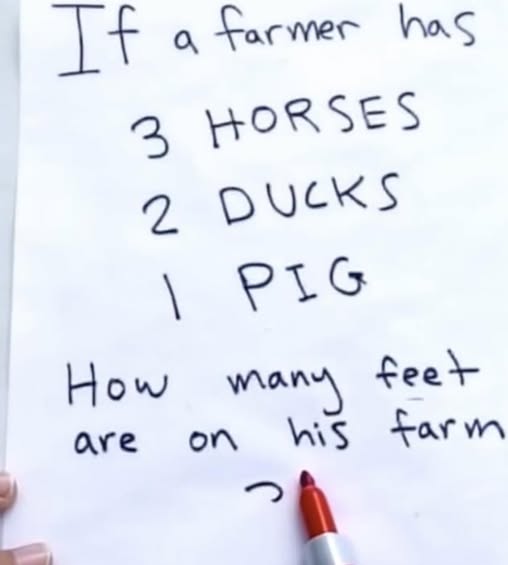 If a farmer has
3 HORSES
2 DUCKS
1 PIG
How many feet
are on his farm